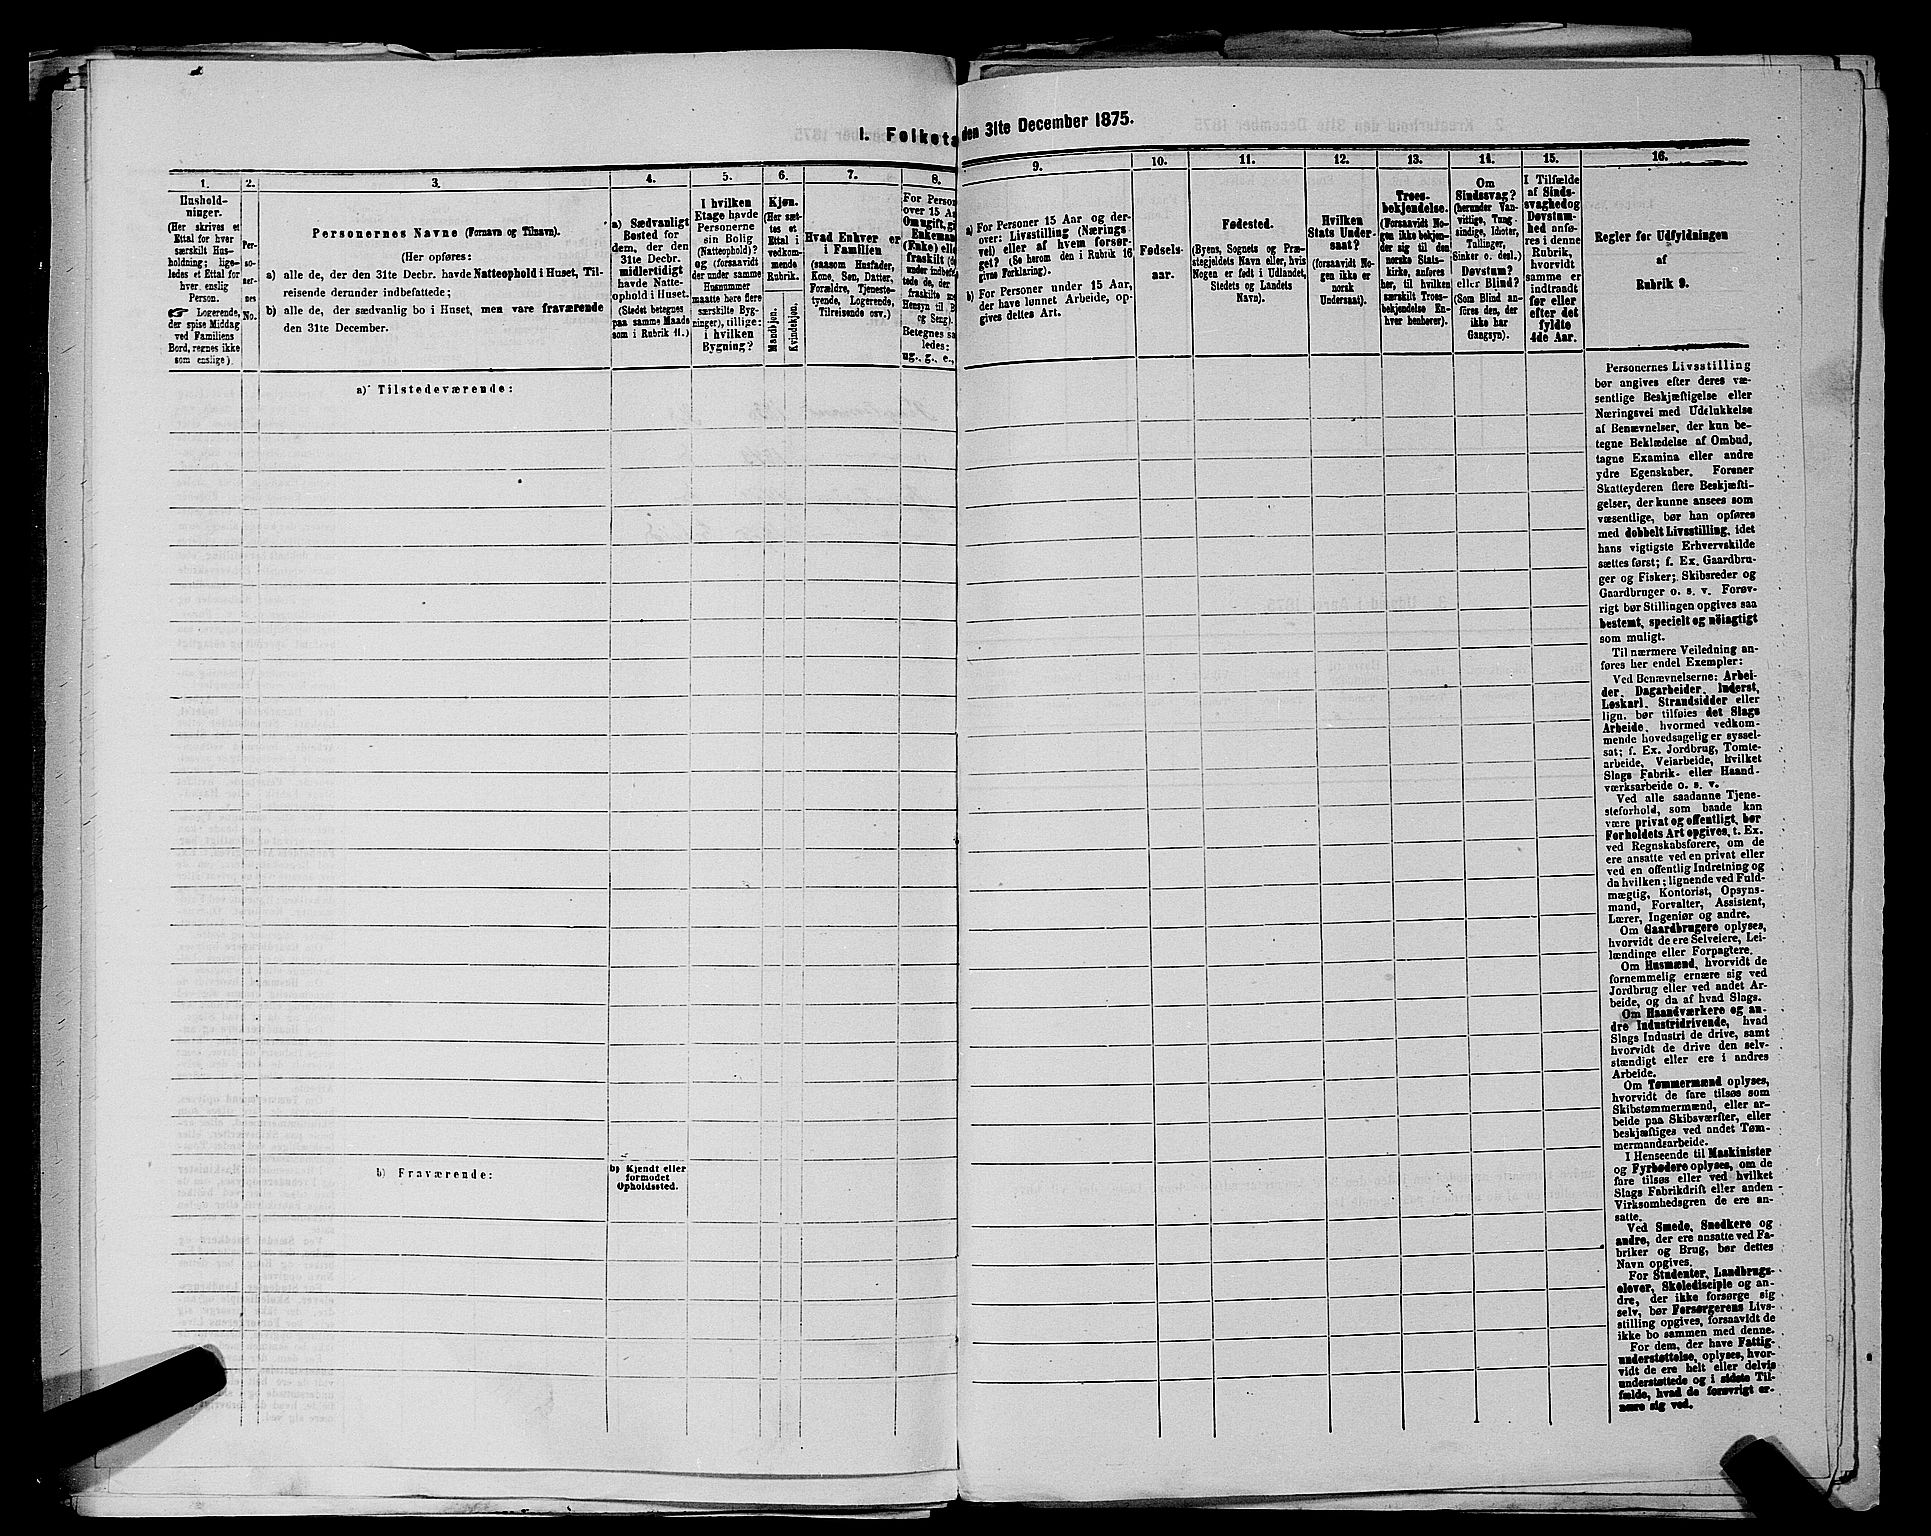 I. Folketæ
den 31te December 1875.
1.
2.
3.
4.
5.
6.
7.
8.
9.
10.
11.
12.
13.
14.
15.
16.
Hushold-
ninger.
(Her skrives et
Ettal for hver
særskilt Hus-
holdning; lige-
ledes et Ettal for
hver. enslig
Person.
☞ Logerende,
der spise Middag
ved Familiens
Bord, regnes ikke
som enslige).
Per-
so-
ner-
nes
No.
Personernes Navne (Fornavn og Tilnavn).
(Her opføres:
a) alle de, der den 31te Decbr. havde Natteophold i Huset, Til-
reisende derunder indbefattede;
b) alle de, der sædvanlig bo i Huset, men vare fraværende
den 31te December.
a) Sædvanligt
Bosted for
dem, der den
31te Decbr.
midlertidigt
havde Natte-
ophold i Huset.
(Stedet betegnes
paa samme Maade
som i Rubrik 11.)
I hvilken
Etage havde
Personerne
sin Bolig
(Natteophold)?
og (forsaavidt
der under samme
Husnummer
maatte høre flere
særskilte Byg-
ninger), tillige:
i hvilken
Bygning?
Kjøn.
(Her sæt-
tes et
Ettal i
vedkom-
mende
Rubrik.
Mandkjøn.
Kvindekjøn.
Hvad Enhver er
i Familien
(saasom Husfader,
Kone, Søn, Datter,
Forældre, Tjeneste-
tyende, Logerende,
Tilreisende osv.)
For Person
over 15 Aa
Omugift, gi
Enkeman
(Enke) elle
fraskilt (d
under indbefa
tede de, der
fraskilte m
Hensyn til B
og Seng).
Betegnes sa
ledes:
ug., g., e.,
a) For Personer 15 Aar og der-
over: Livsstilling (Nærings-
vei) eller af hvem forsør-
get? (Se herom den i Rubrik 16
givne Forklaring).
b) For Personer under 15 Aar,
der have lønnet Arbeide, op-
gives dettes Art.
Fødsels-
aar.
Fødested.
(Byens, Sognets og Præ-
stegjeldets Navn eller, hvis
Nogen er født i Udlandet,
Stedets og Landets
Navn).
Hvilken
Stats Under-
saat?
(forsaavidt No-
gen ikke er
norsk
Undersaat).
Troes-
bekjendelse.
(Forsaavidt No-
gen ikke bekjen-
der sig til den
norske Stats-
kirke, anføres
her, til hvilken
særskilt Troes-
bekjendelse En-
hver henhører).
Om
Sindssvag?
(herunder Van-
vittige, Tung-
sindige, Idioter,
Tullinger,
Sinker o. desl.)
Døvstum?
eller Blind?
(Som Blind an-
føres den, der
ikke har
Gangsyn).
I Tilfælde
af Sinds-
svaghed og
Døvstum-
hed anfø-
res i denne
Rubrik,
hvorvidt
samme er
indtraadt
før eller
efter det
fyldte
4de Aar.
Regler for Udfyldningen
af
Rubrik 9.
a) Tilstedeværende:
b) Fraværende:
b) Kjendt eller
formodet
Opholdssted.
Personernes Livsstilling
bør angives efter deres væ-
sentlige Beskjæftigelse eller
Næringsvei med Udelukkelse
af Benævnelser, der kun be-
tegne Beklædelse af Ombud,
tagne Examina eller andre
ydre Egenskaber. Forener
Skatteyderen flere Beskjæfti-
gelser, der kunne ansees som
væsentlige, bør han opføres
med dobbelt Livsstilling, idet
hans vigtigste Erhvervskilde
sættes først; f. Ex. Gaardbru-
ger og Fisker; Skibsreder og
Gaardbruger o. s. v. Forøv-
rigt bør Stillingen opgives saa
bestemt, specielt og nöiagtigt
som muligt.
Til nærmere Veiledning an-
føres her endel Exempler:
Ved Benævnelserne: Arbei-
der, Dagarbeider, Inderst,
Løskarl, Strandsidder eller
lign. bør tilføies det Slags
Arbeide, hvormed vedkom-
mende hovedsagelig er syssel-
sat; f. Ex. Jordbrug, Tomte-
arbeide, Veiarbeide, hvilket
Slags Fabrik- eller Haand-
værksarbeide o. s. v.
Ved alle saadanne Tjene-
steforhold, som baade kan
være privat og offentligt, bør
Forholdets Art opgives, t. Ex.
ved Regnskabsførere, om de
ere ansatte ved en privat eller
ved en offentlig Indretning og
da hvilken; lignende ved Fuld-
mægtig, Kontorist, Opsyns-
mand, Forvalter, Assistent,
Lærer, Ingeniør og andre.
Om Gaardbrugere oplyses,
hvorvidt de ere Selveiere, Lei-
lændinge eller Forpagtere.
Om Husmænd, hvorvidt de
fornemmelig ernære sig ved
Jordbrug eller ved andet Ar-
beide, og da af hvad Slags.
Om Haandværkere og an-
dre Industridrivende, hvad
Slags Industri de drive, samt
hvorvidt de drive den selv-
stændigt eller ere i andres
Arbeide.
Om Tømmermænd oplyses,
hvorvidt de fare tilsøs som
Skibstømmermænd, eller ar-
beide paa Skibsværfter, eller
beskjæftiges ved andet Tøm-
mermandsarbeide.
I Henseende til Maskinister
og Fyrbødere oplyses, om de
fare tilsøs eller ved hvilket
Slags Fabrikdrift eller anden
Virksomhedsgren de ere an-
satte.
Ved Smede, Snedkere og
andre, der ere ansatte ved Fa-
briker og Brug, bør dettes
Navn opgives.
For Studenter, Landbrugs-
elever, Skoledisciple og an-
dre, der ikke forsørge sig
selv, bør Forsørgerens Livs-
stilling opgives, forsaavidt de
ikke bo sammen med denne.
For dem, der have Fattig-
understøttelse, oplyses, hvor-
vidt de ere helt eller delvis
understøttede og i sidste Til-
fælde, hvad de forøvrigt er-
nære sig ved.